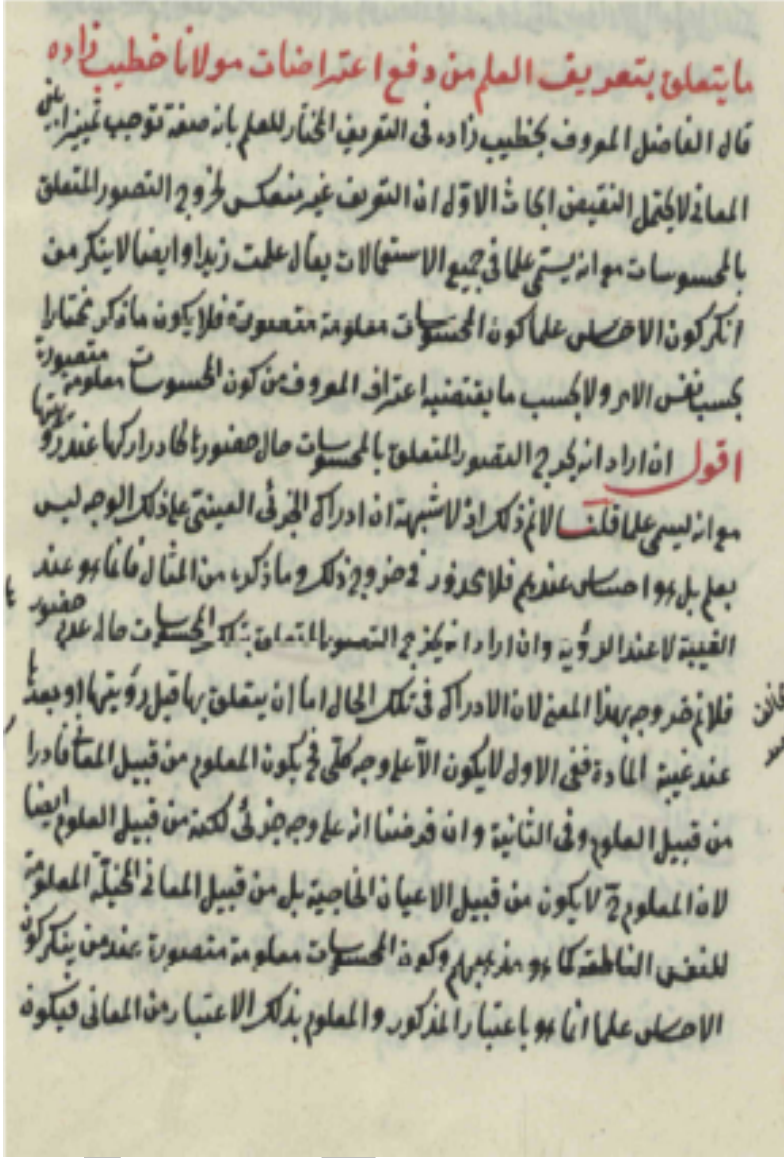 ما يتعلق بتعريف العلم من دفع اعتراضات مولانا خطيب زاده
قال الفاضل المعروف بخطيب زاده في التعريف المختار للعلم بانه صفة توجب تمييزا بين
المعاني لا يحتمل النقيض ابحاث الاول ان التعريف غير منعكس لخروج التصور المتعلق
بالمحسوسات مع انه يسمى علما في جميع الاستعمالات يقال علمت زيدا وايضا لا ينكر من
انكر كون الاحساس علما كون المحسوسات معلومة متصورة فلا يكون ما ذكر مختارا
بحسب نفس الامر ولا بحسب ما يقتضيه اعتراف المعروف من كون المحسوسات معلومة متصورة
اقول ان اراد انه يخرج التصور المتعلق بالمحسوسات حال حضورها كادراكها عند رؤيتها
مع انه ليسمى علما قلنا لانم ذلك اذ لا شبهة ان ادراك الجزئي العيني على ذلك الوجه ليس
بعلم بل هو احساس عندهم فلا محذور في خروج ذلك وما ذكره من المثال فانما هو عند
الغيبة لا عند الرؤية وان اراد انه يخرج التصور المتعلق بتلك المحسوسات حال عدم حضورها
فلانم خروجه بهذا المعنى لان الادراك في تلك الحال اما ان يتعلق بها قبل رؤيتها او بعدها
عند غيبة المادة ففي الاول لا يكون الا على وجه كلي فح يكون المعلوم من قبيل المعاني فادرا
من قبيل العلوم وفي الثانية وان فرضنا انه على وجه جزئي لكنه من قبيل العلوم ايضا
لان المعلوم ح لا يكون من قبيل الاعيان الخارجية بل من قبيل المعاني المخيلة المعلومة
للنفس الناطقة كما هو مذهبهم وكون المحسوسات معلومة متصورة عند من ينكر كون
الاحساس علما انما هو باعتبار المذكور والمعلوم بذلك الاعتبار من المعاني فيكون